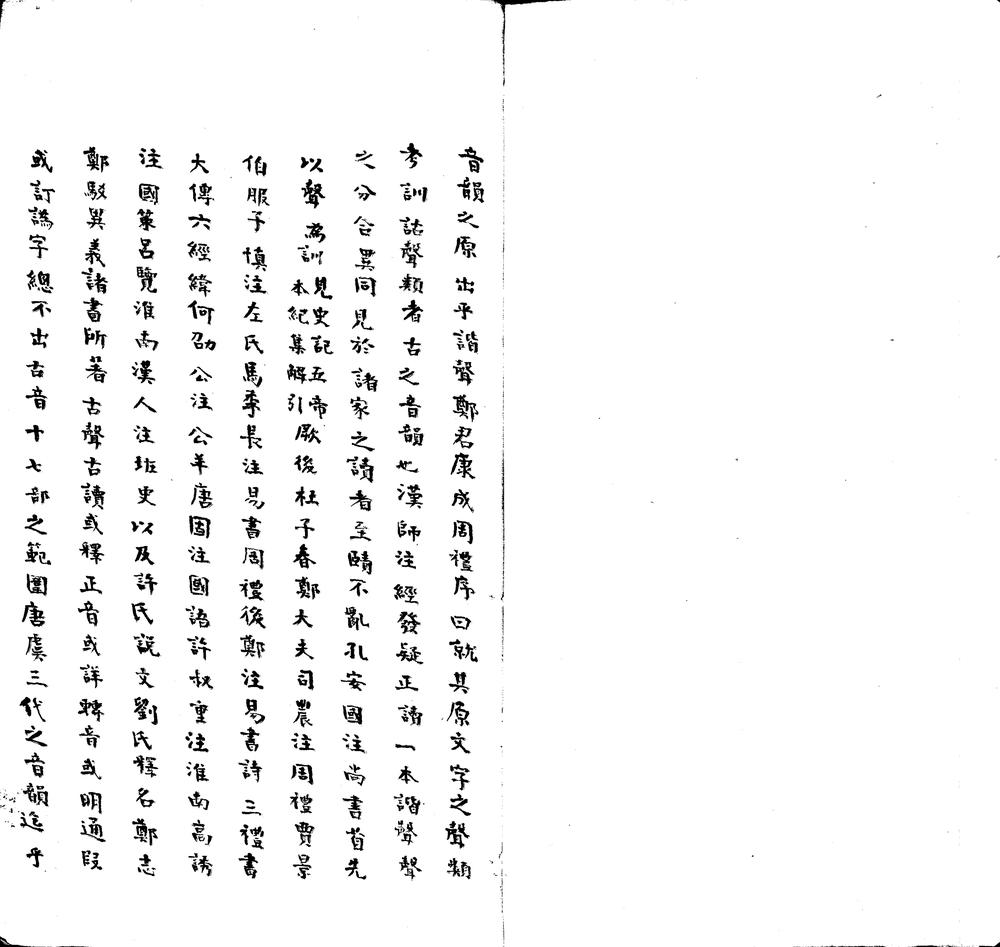 音韻之原出乎諧聲鄭君康成周禮序曰就其原文字之聲類
考訓詁聲類者古之音韻也漢師注經發疑正讀一本諧聲聲
之分合異同見於諸家之讀者至賾不亂孔安國注尚書首先
以聲為訓見史記五帝本紀集解引厥後杜子春鄭大夫司農注周禮賈景
伯服子慎注左氏馬季長注易書周禮後鄭注易書詩三禮書
大傳六經緯何劭公注公羊唐固注國語許叔重注淮南高誘
注國策呂覽淮南漢人注班史以及許氏說文劉氏釋名鄭志
鄭駁異義諸書所著古聲古讀或釋正音或詳轉音或明通叚
或訂譌字總不出古音十七部之範圍唐虞三代之音韻迄乎